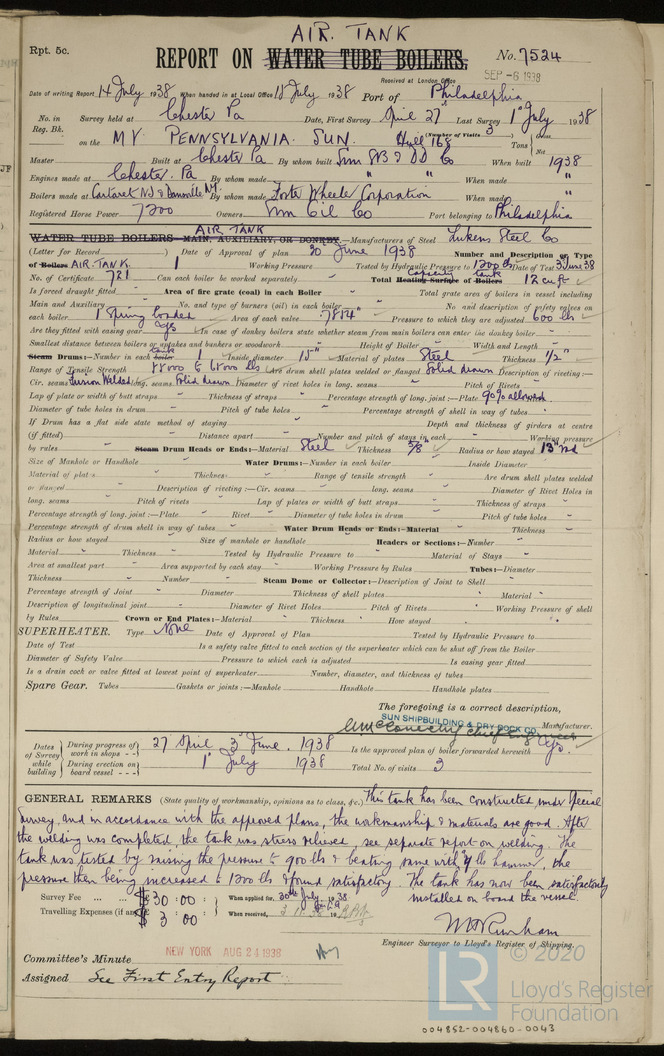 AIR. TANK
Rpt. 5c.
REPORT ON WATER TUBE BOILERS. No. 7524
Received at London Office
SEP -6 1938
Date of writing Report 14 July 1938 When handed in at Local Office 18 July 1938 Port of Philadelphia
No. in Reg. Bk. Survey held at Chester Pa Date, First Survey April 27th Last Survey 1st July 1938
(Number of Visits 3)
on the MV. PENNSYLVANIA. SUN. Hull 168 Tons { Gross Net
Master Built at Chester Pa By whom built Sun SB & DD Co When built 1938
Engines made at Chester. Pa By whom made " " When made "
Boilers made at Carteret NJ & By whom made Foster Wheeler Corporation When made "
Registered Horse Power 7200 Owners Sun Oil Co Port belonging to Philadelphia
AIR TANK
WATER TUBE BOILERS—MAIN, AUXILIARY, OR DONKEY.—Manufacturers of Steel Lukens Steel Co
(Letter for Record ) Date of Approval of plan 30 June 1938 Number and Description or Type
of Boilers AIR TANK 1 Working Pressure Tested by Hydraulic Pressure to 1200 lbs Date of Test 3 June 38
No. of Certificate 721 Can each boiler be worked separately Total Heating Surface of Boilers capacity tank 12 cu ft
Is forced draught fitted Area of fire grate (coal) in each Boiler Total grate area of boilers in vessel including
Main and Auxiliary No. and type of burners (oil) in each boiler No. and description of safety valves on
each boiler 1 Spring loaded Area of each valve .7854" Pressure to which they are adjusted 600 lbs
Are they fitted with easing gear yes In case of donkey boilers state whether steam from main boilers can enter the donkey boiler
Smallest distance between boilers or uptakes and bunkers or woodwork Height of Boiler Width and Length
Steam Drums:—Number in each boiler tank 1 Inside diameter 15" Material of plates Steel Thickness 1/2"
Range of Tensile Strength 55000 to 65000 lbs Are drum shell plates welded or flanged Solid drawn Description of riveting:—
Cir. seams Fusion Welded long. seams Solid drawn Diameter of rivet holes in long. seams Pitch of Rivets
Lap of plate or width of butt straps Thickness of straps Percentage strength of long. joint:—Plate 90% allowed
Diameter of tube holes in drum Pitch of tube holes Percentage strength of shell in way of tubes
If Drum has a flat side state method of staying Depth and thickness of girders at centre
(if fitted) Distance apart Number and pitch of stays in each Working pressure
by rules Steam Drum Heads or Ends:—Material Steel Thickness 5/8" Radius or how stayed 13" rad
Size of Manhole or Handhole Water Drums:—Number in each boiler Inside Diameter
Material of plates Thickness Range of tensile strength Are drum shell plates welded
or flanged Description of riveting:—Cir. seams long. seams Diameter of Rivet Holes in
long. seams Pitch of rivets Lap of plates or width of butt straps Thickness of straps
Percentage strength of long. joint:—Plate Rivet Diameter of tube holes in drum Pitch of tube holes
Percentage strength of drum shell in way of tubes Water Drum Heads or Ends:—Material Thickness
Radius or how stayed Size of manhole or handhole Headers or Sections:—Number
Material Thickness Tested by Hydraulic Pressure to Material of Stays
Area at smallest part Area supported by each stay Working Pressure by Rules Tubes:—Diameter
Thickness Number Steam Dome or Collector:—Description of Joint to Shell
Percentage strength of Joint Diameter Thickness of shell plates Material
Description of longitudinal joint Diameter of Rivet Holes Pitch of Rivets Working Pressure of shell
by Rules Crown or End Plates:—Material Thickness How stayed
SUPERHEATER. Type None Date of Approval of Plan Tested by Hydraulic Pressure to
Date of Test Is a safety valve fitted to each section of the superheater which can be shut off from the Boiler
Diameter of Safety Valve Pressure to which each is adjusted Is easing gear fitted
Is a drain cock or valve fitted at lowest point of superheater Number, diameter, and thickness of tubes
Spare Gear. Tubes Gaskets or joints:—Manhole Handhole Handhole plates
The foregoing is a correct description,
SUN SHIPBUILDING & DRY DOCK CO.
Chief Engineer Manufacturer.
Dates of Survey while building { During progress of work in shops - - } 27 April 3 June. 1938 Is the approved plan of boiler forwarded herewith yes.
{ During erection on board vessel - - - } 1st July 1938 Total No. of visits 3
GENERAL REMARKS (State quality of workmanship, opinions as to class, &c.) This tank has been constructed under Special
Survey, and in accordance with the approved plans, the workmanship & materials are good. After
the welding was completed, the tank was stress relieved, see separate report on welding. The
tank was tested by raising the pressure to 900 lbs & beating same with lb hammer, the
pressure then being increased to 1200 lbs & found satisfactory. The tank has now been satisfactorily
installed on board the vessel.
Survey Fee ... ... $30 : 00 : When applied for, 30th July 1938
Travelling Expenses (if any) $ 3 : 00 When received,
Engineer Surveyor to Lloyd's Register of Shipping.
Committee's Minute NEW YORK AUG 24 1938
Assigned See First Entry Report
LR © 2020
Lloyd's Register
Foundation
004852-004860-0043